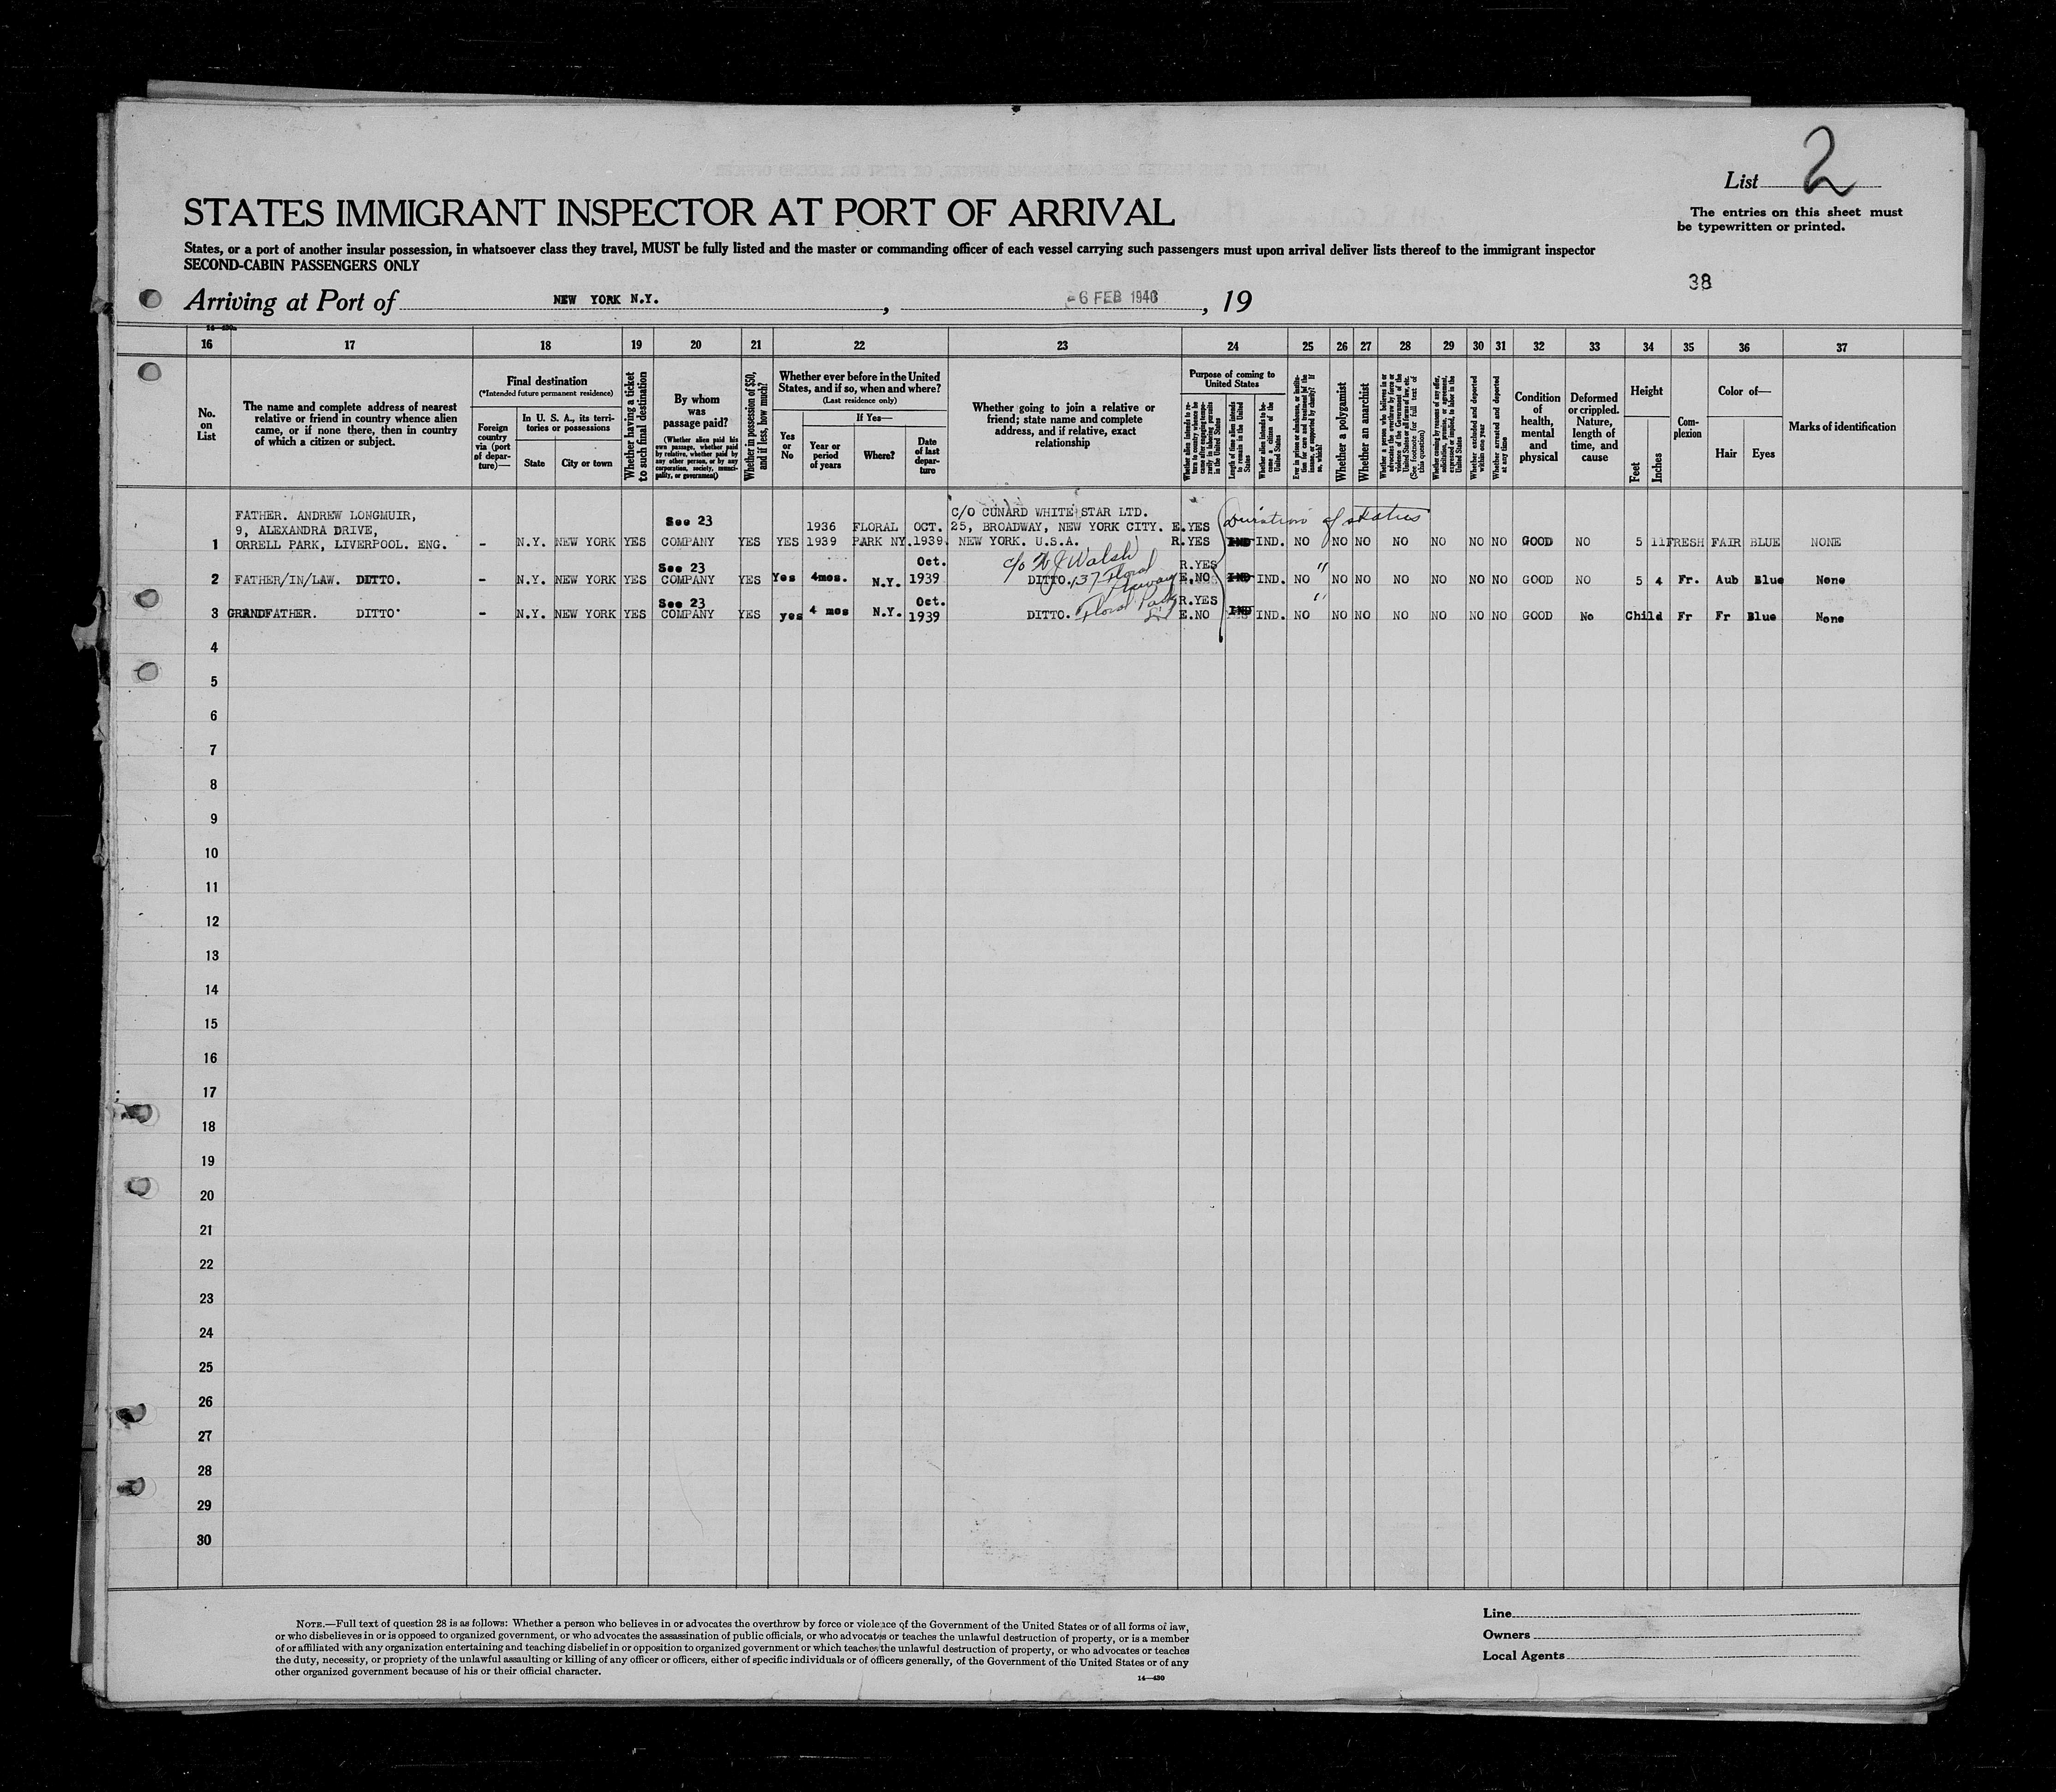 List 2
The entries on this sheet must
be typewritten or printed.
STATES IMMIGRANT INSPECTOR AT PORT OF ARRIVAL
States, or a port of another insular possession, in whatsoever class they travel, MUST be fully listed and the master or commanding officer of each vessel carrying such passengers must upon arrival deliver lists thereof to the immigrant inspector
SECOND-CABIN PASSENGERS ONLY
38
Arriving at Port of NEW YORK N.Y. , -6 FEB 1940 , 19
14—430
16 17 18 19 20 21 22 23 24 25 26 27 28 29 30 31 32 33 34 35 36 37
No.
on
List
The name and complete address of nearest
relative or friend in country whence alien
came, or if none there, then in country
of which a citizen or subject.
Final destination
(*Intended future permanent residence)
Foreign
country
via (port
of depar-
ture)—
In U. S. A., its terri-
tories or possessions
State
City or town
Whether having a ticket
to such final destination
By whom
was
passage paid?
(Whether alien paid his
own passage, whether paid
by relative, whether paid by
any other person, or by any
corporation, society, munici-
pality, or government)
Whether in possession of $50,
and if less, how much?
Whether ever before in the United
States, and if so, when and where?
(Last residence only)
Yes
or
No
If Yes—
Year or
period
of years
Where?
Date
of last
depar-
ture
Whether going to join a relative or
friend; state name and complete
address, and if relative, exact
relationship
Purpose of coming to
United States
Whether alien intends to re-
turn to country whence he
came after engaging tempo-
rarily in laboring pursuits
in the United States
Length of time alien intends
to remain in the United
States
Whether alien intends to be-
come a citizen of the
United States
Ever in prison or almshouse, or institu-
tion for care and treatment of the
insane, or supported by charity? If
so, which?
Whether a polygamist
Whether an anarchist
Whether a person who believes in or
advocates the overthrow by force or
violence of the Government of the
United States or all forms of law, etc.
(See footnote for full text of
this question)
Whether coming by reasons of any offer,
solicitation, promise, or agreement,
expressed or implied, to labor in the
United States
Whether excluded and deported
within one year
Whether arrested and deported
at any time
Condition
of
health,
mental
and
physical
Deformed
or crippled.
Nature,
length of
time, and
cause
Height
Feet
Inches
Com-
plexion
Color of—
Hair
Eyes
Marks of identification
FATHER. ANDREW LONGMUIR, C/O CUNARD WHITE STAR LTD.
9, ALEXANDRA DRIVE, See 23 1936 FLORAL OCT. 25, BROADWAY, NEW YORK CITY. E.YES Duration of status
1 ORRELL PARK, LIVERPOOL. ENG. - N.Y. NEW YORK YES COMPANY YES YES 1939 PARK NY. 1939. NEW YORK. U.S.A. R.YES IND IND. NO NO NO NO NO NO NO GOOD NO 5 11 FRESH FAIR BLUE NONE
See 23 Oct. c/o W J Walsh R.YES
2 FATHER/IN/LAW. DITTO. - N.Y. NEW YORK YES COMPANY YES Yes 4mos. N.Y. 1939 DITTO. 137 Floral E.NO IND IND. NO " NO NO NO NO NO NO GOOD NO 5 4 Fr. Aub Blue None
See 23 Oct. Floral Park R.YES "
3 GRANDFATHER. DITTO - N.Y. NEW YORK YES COMPANY YES yes 4 mos N.Y. 1939 DITTO. E.NO IND IND. NO NO NO NO NO NO NO GOOD No Child Fr Fr Blue None
4
5
6
7
8
9
10
11
12
13
14
15
16
17
18
19
20
21
22
23
24
25
26
27
28
29
30
NOTE.—Full text of question 28 is as follows: Whether a person who believes in or advocates the overthrow by force or violence of the Government of the United States or of all forms of law,
or who disbelieves in or is opposed to organized government, or who advocates the assassination of public officials, or who advocates or teaches the unlawful destruction of property, or is a member
of or affiliated with any organization entertaining and teaching disbelief in or opposition to organized government or which teaches the unlawful destruction of property, or who advocates or teaches
the duty, necessity, or propriety of the unlawful assaulting or killing of any officer or officers, either of specific individuals or of officers generally, of the Government of the United States or of any
other organized government because of his or their official character.
14—430
Line
Owners
Local Agents